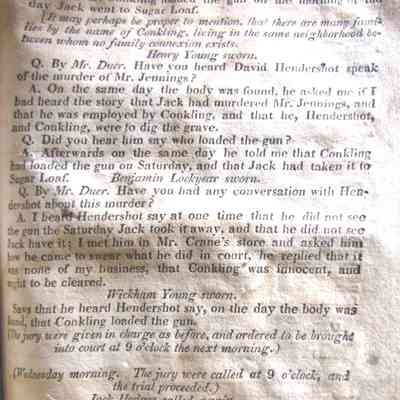 day Jack went to Sugar Loaf.
It may perhaps be proper to mention, that there are many fami-
lies by the name of Conkling, living in the same neighborhood be-
tween whom no family connexion exists.
Henry Young sworn.
Q. By Mr. Duer. Have you heard David Hendershot speak
of the murder of Mr. Jennings?
A. On the same day the body was found, he asked me if I
had heard the story that Jack had murdered Mr. Jennings, and
that he was employed by Conkling, and that he, Hendershot,
and Conkling, were to dig the grave.
Q. Did you hear him say who loaded the gun?
A. Afterwards on the same day he told me that Conkling
had loaded the gun on Saturday, and that Jack had taken it to
Sugar Loaf. Benjamin Lockyear sworn.
Q. By Mr. Duer. Have you had any conversation with Hen-
dershot about this murder?
A. I heard Hendershot say at one time that he did not see
the gun the Saturday Jack took it away, and that he did not see
Jack have it; I met him in Mr. Crane's store and asked him
how he came to swear what he did in court, he replied that it
was none of my business, that Conkling was innocent, and
ought to be cleared.
Wickham Young sworn.
Says that he heard Hendershot say, on the day the body was
found, that Conkling loaded the gun.
(The jury were given in charge as before, and ordered to be brought
into court at 9 o'clock the next morning.)
(Wednesday morning. The jury were called at 9 o'clock, and
the trial proceeded.)